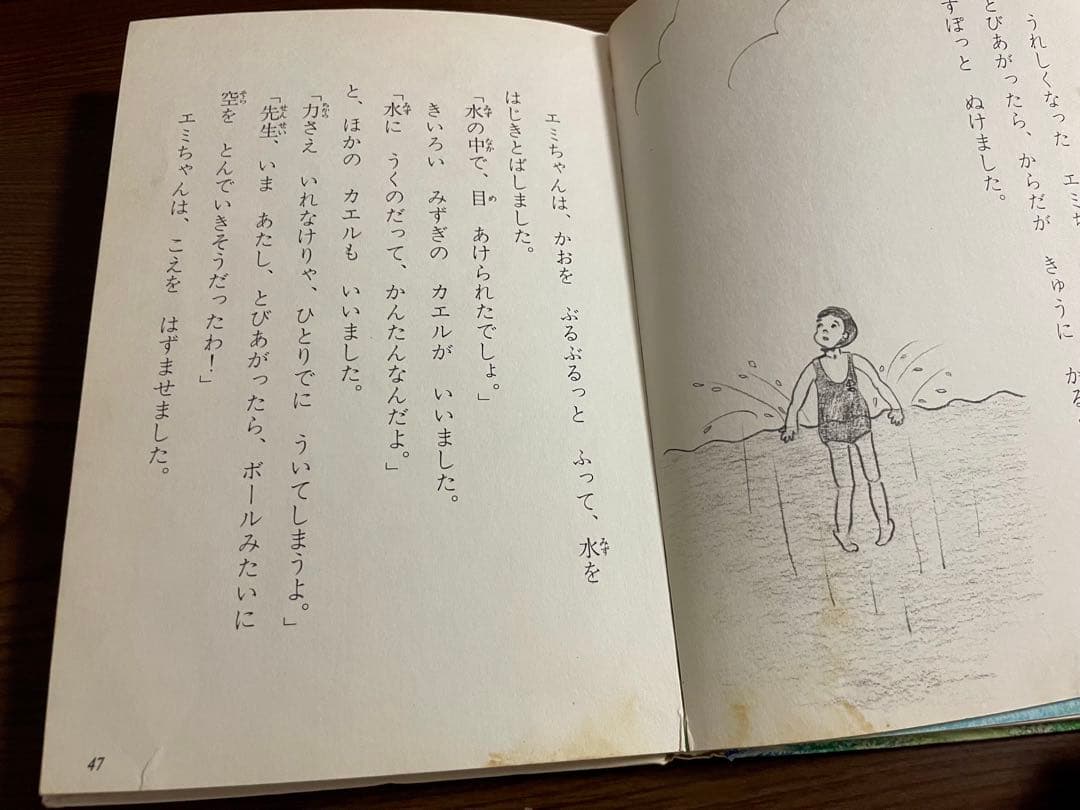 うれしくなった　エミち
とびあがったら、からだが　きゅうに　かる
すぽっと　ぬけました。
エミちゃんは、かおを　ぶるぶるっと　ふって、水を
はじきとばしました。
「水の中で、目　あけられたでしょ。」
きいろい　みずぎの　カエルが　いいました。
「水に　うくのだって、かんたんなんだよ。」
と、ほかの　カエルも　いいました。
「力さえ　いれなけりゃ、ひとりでに　ういてしまうよ。」
「先生、いま　あたし、とびあがったら、ボールみたいに
空を　とんでいきそうだったわ！」
エミちゃんは、こえを　はずませました。
47